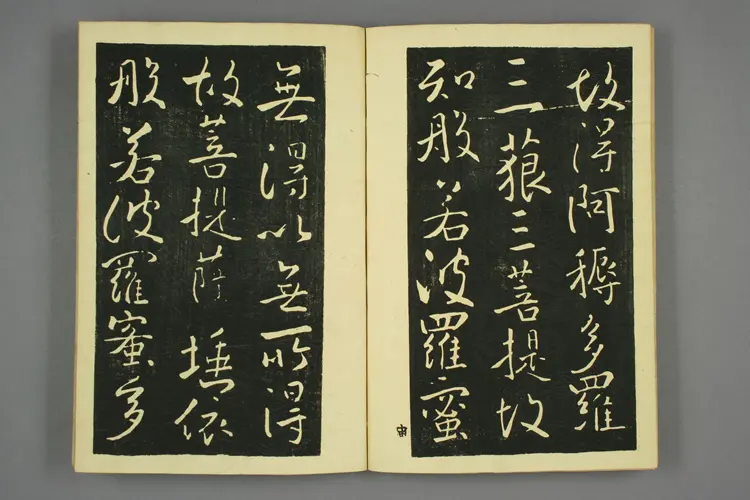 故得阿耨多羅
三藐三菩提故
知般若波羅蜜
無得以無所得
故菩提薩埵依
般若波羅蜜多